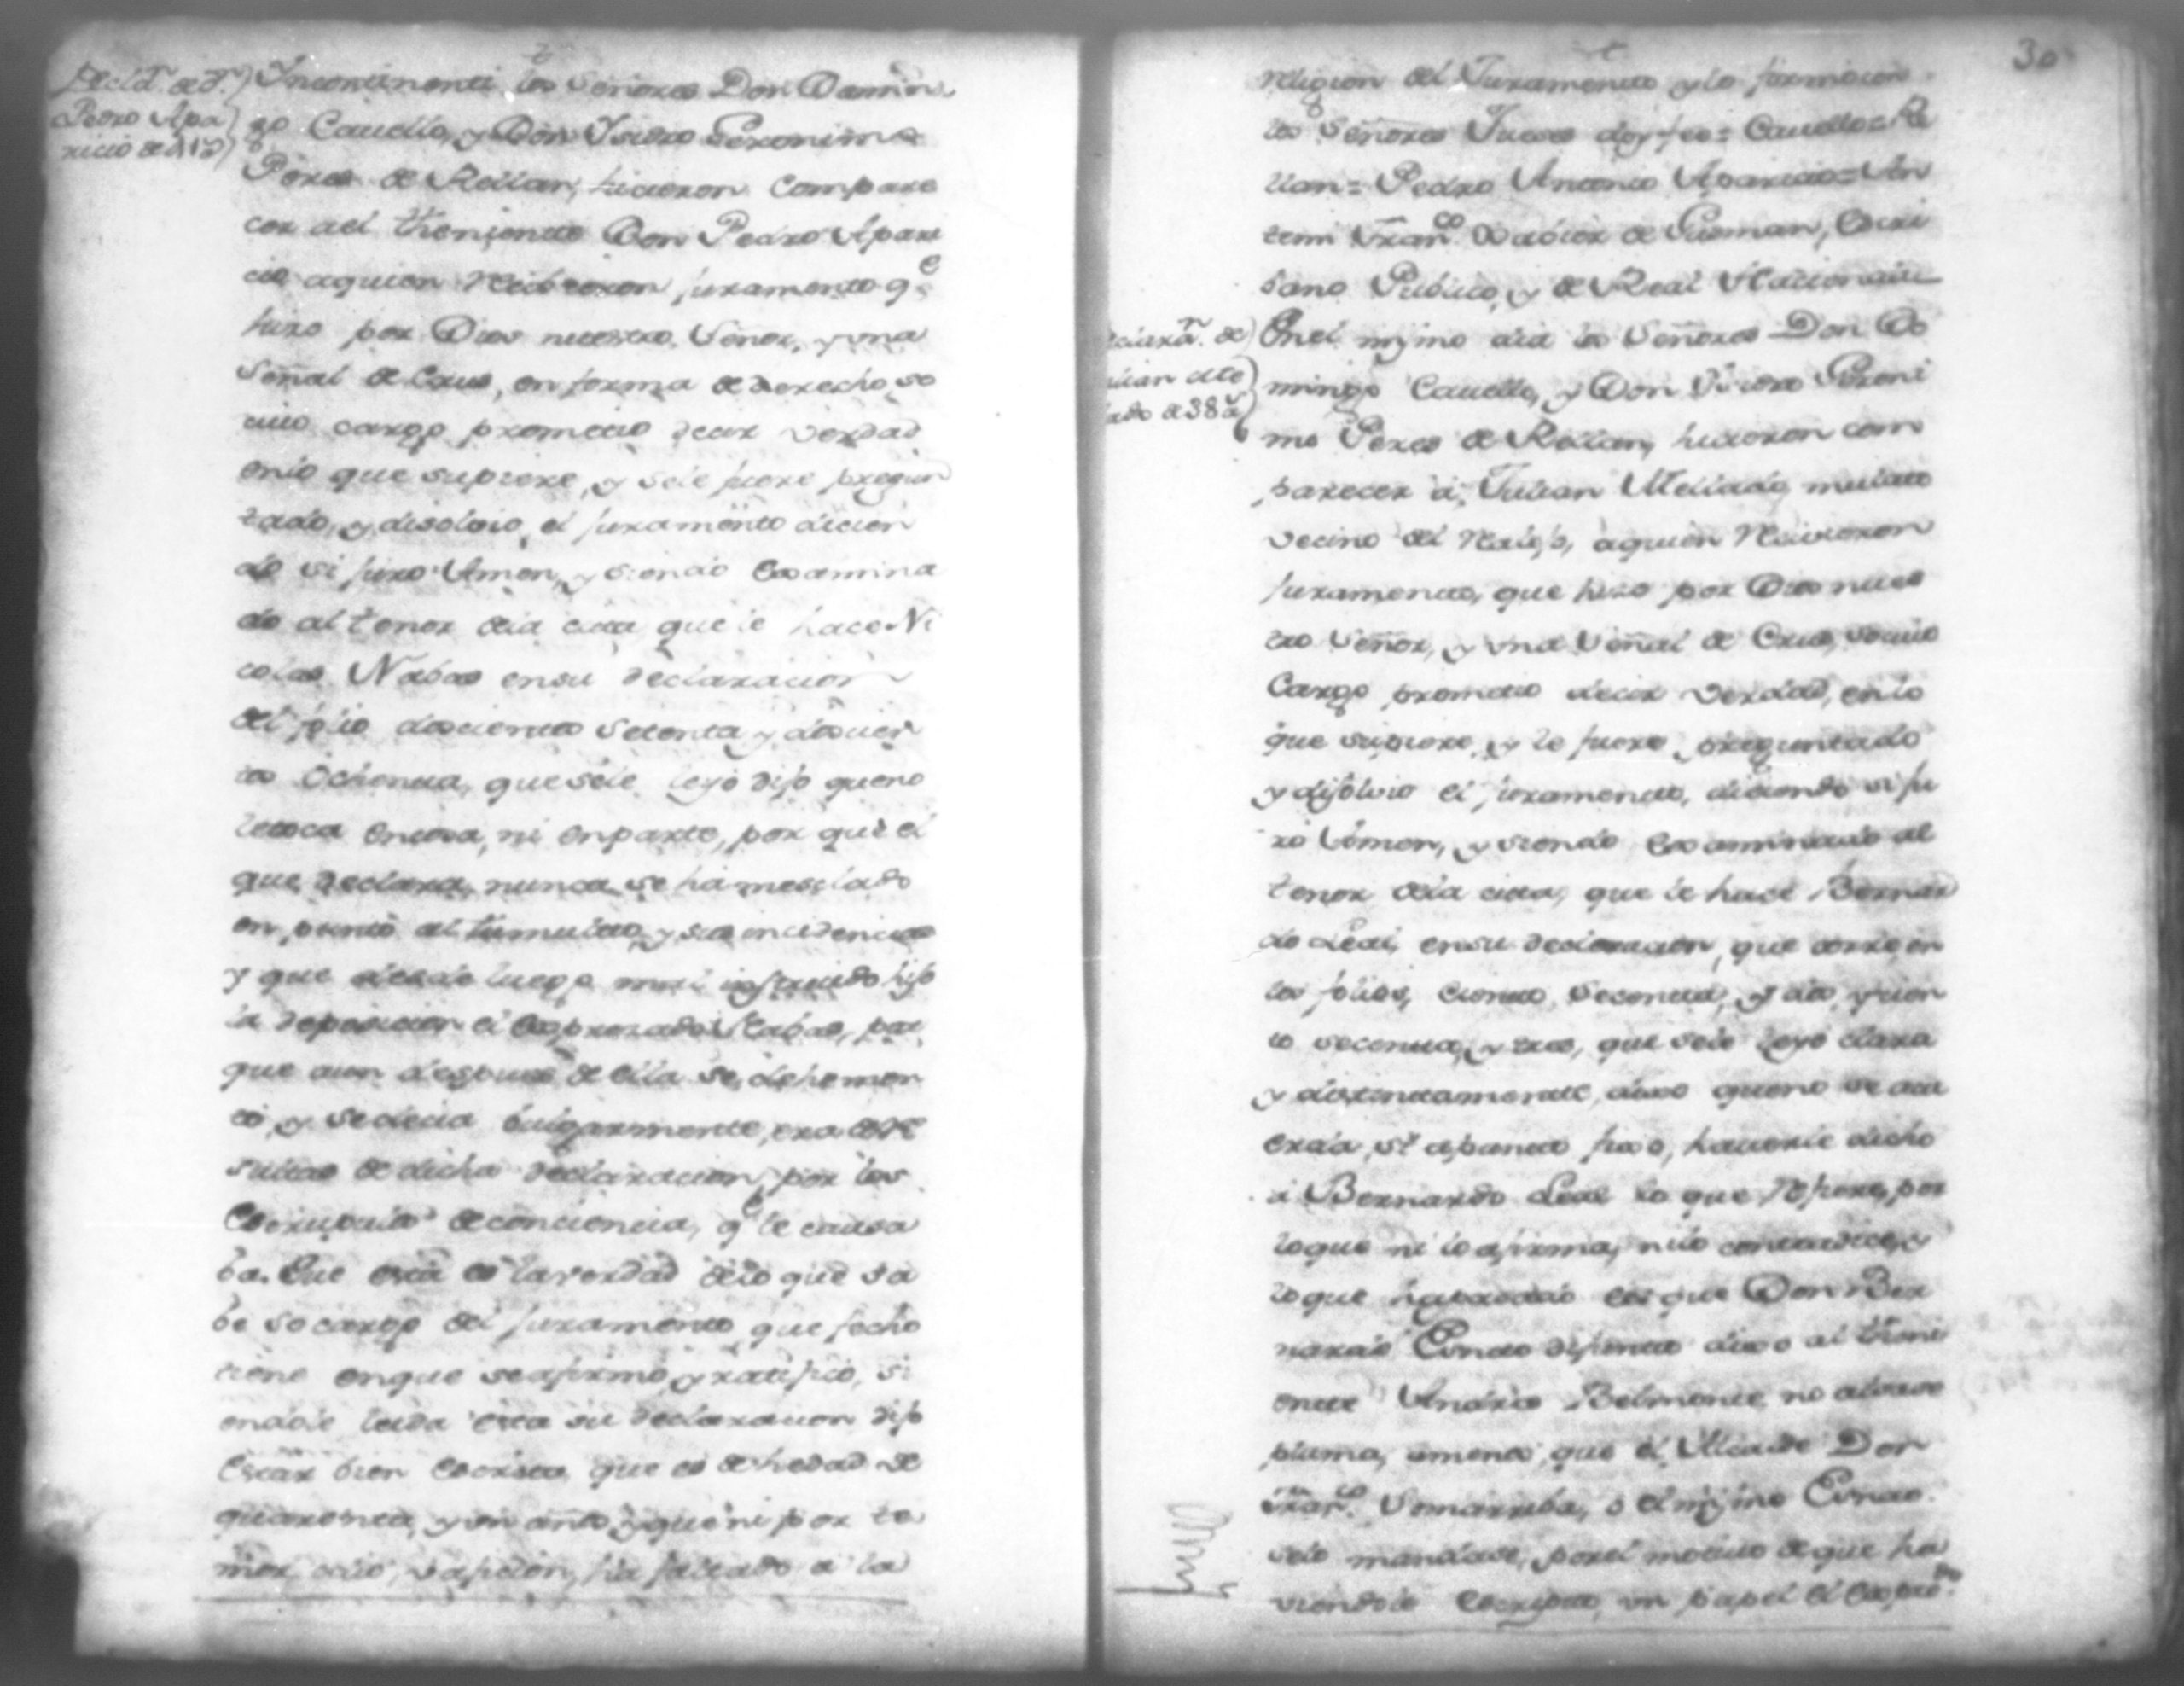 Declⁿ. de Dⁿ.
Pedro Apa
ricio de 41 a
Incontinenti los Señores Don Domin
go Cauello, y Don Isidro Geronimo
Peres de Rollan, hicieron compare
cer al theniente Don Pedro Apari
cio aquien recibieron juramento q.e
hizo por Dios nuestro Señor, y una
Señal de Crus, en forma de derecho, so
cuio cargo prometio decir verdad
enlo que supiere, y sele fuere pregun
tado, y disolvio el juramento dicien
do si juro Amen, y siendo examina
do al tenor dela cita que le hace Ni
colas Nabas ensu declaracion
del folio doscientos setenta y doscien
tos ochenta, quesele leyó dijo queno
letoca entoda, ni enparte, por que el
que declara, nunca se há mesclado
en punto al tumulto, y sus incidencias
y que desde luego mal instruido hiso
la deposicion el expresado Nabas, por
que aun despues de ella se dehemen
tó, y sedecia bulgarmente, era de re
sultas de dicha declaracion, por los
escrupulos deconciencia, q.e le causa
ba. Que esta es la verdad delo que sa
be so cargo del juramento que fecho
tiene enque seafirmó, y ratificó, si
endole leida esta su declaracion dijo
estar bien escrita, que es de hedad de
quarenta, y un años, y que ni por te
mor, odio, o aficion, há faltado a la
30
religion del Juramento y lo firmaron
los Señores Jueces doy fee = Cauello = Ro
llan = Pedro Antonio Aparicio = An
temi Fran.co de Guzman, Escri
bano Publico, y de Real Hacienda
claraⁿ. de
ulian Me
ado de 38 a
Enel mismo dia los Señores Don Do
mingo Cauello, y Don Isidro Geroni
mo Peres de Rollan, hicieron com
parecer á Julian Mellado, mulato
vecino del Realejo, aquien recivieron
juramento, que hizo por Dios nues
tro Señor, y una Señal de Crus, so cuio
cargo prometio decir verdad, enlo
que supiere, y le fuere preguntado
y disolvio el juramento, diciendo si ju
ro Amen, y siendo examinado al
tenor dela cita, que le hace Bernar
do Leal, ensu declaracion, que corre en
los folios, ciento sesenta, y dos, y cien
to sesenta, y tres, que sele leyo clara
y distintamente, dixo queno se acu
erda, si apunto fixo, hauerle dicho
á Bernardo Leal lo que refiere, por
loque ni lo afirma, nilo contradice, y
loque es que Don Ber
nardo Conde difunto dixo al theni
ente Andres Belmonte, no alsase
pluma, amenos que el Alcalde Don
Fran.co Somarriba, ó el mismo Conde
selo mandase, porel motivo de que ha
viendole escripto, un papel el expre.do